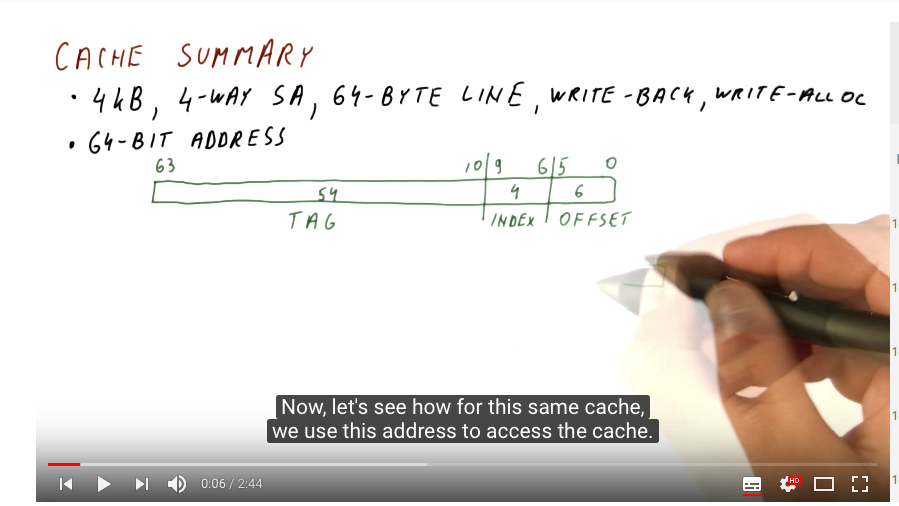 CACHE SUMMARY
• 4kB, 4-WAY SA, 64-BYTE LINE, WRITE-BACK, WRITE-ALLOC
• 64-BIT ADDRESS
63 10 9 6 5 0
54 4 6
TAG INDEX OFFSET
Now, let's see how for this same cache,
we use this address to access the cache.
0:06 / 2:44 HD